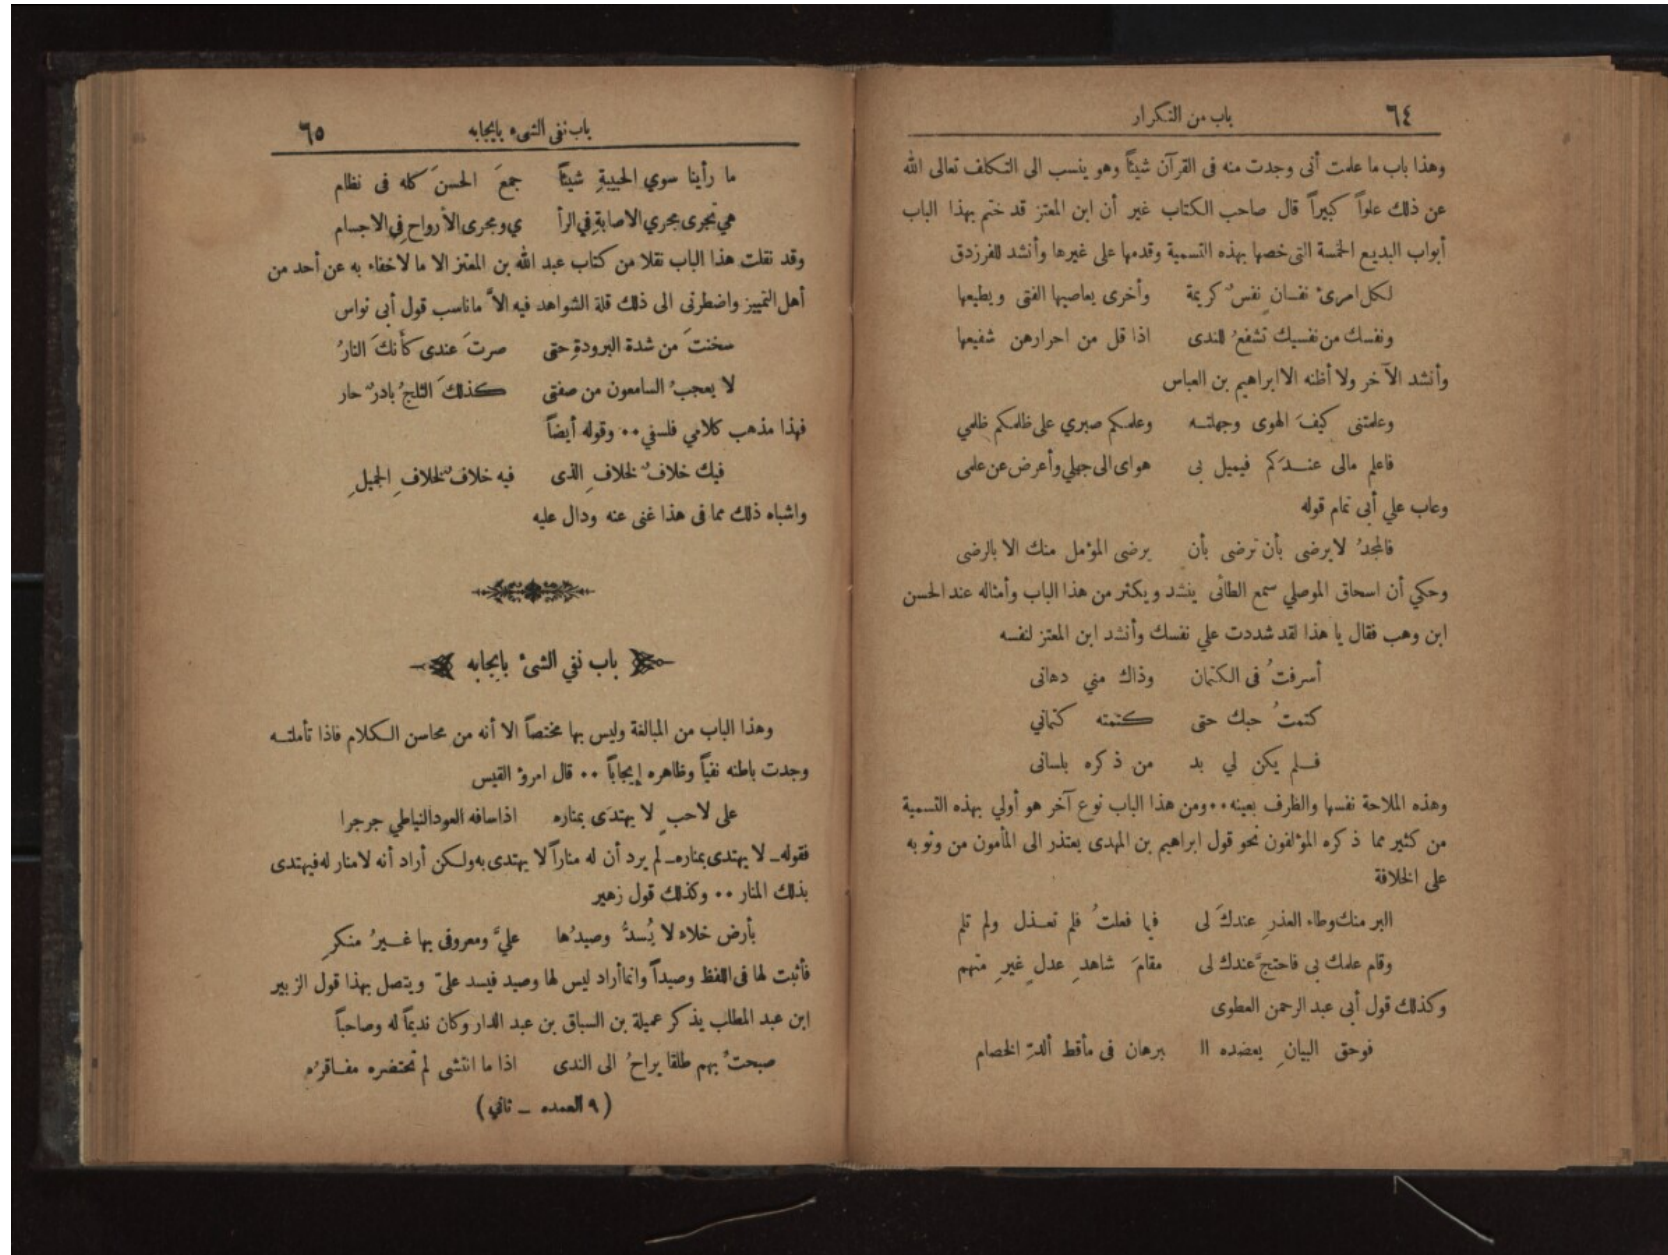 ٦٤
باب من التكرار
وهذا باب ما علمت أنى وجدت منه فى القرآن شيئاً وهو ينسب الى التكلف تعالى الله
عن ذلك علواً كبيراً قال صاحب الكتاب غير أن ابن المعتز قد ختم بهذا الباب
أبواب البديع الخمسة التى خصها بهذه التسمية وقدمها على غيرها وأنشد للفرزدق
لكل امرئ نفسان نفسٌ كريمة وأخرى يعاصيها الفتى ويطيعها
ونفسك من نفسيك تشفعُ للندى اذا قل من احرارهن شفيعها
وأنشد الآخر ولا أظنه الا ابراهيم بن العباس
وعلمتنى كيفَ الهوى وجهلتـه وعلمكم صبري على ظلمكم ظلمي
فاعلم مالى عنـدكم فيميل بى هواى الى جهلي وأعرض عن علمى
وعاب علي أبى تمام قوله
فالمجدُ لا يرضى بأن ترضى بأن يرضى المؤمل منك الا بالرضى
وحكي أن اسحاق الموصلي سمع الطائى ينشد ويكثر من هذا الباب وأمثاله عند الحسن
ابن وهب فقال يا هذا لقد شددت علي نفسك وأنشد ابن المعتز لنفسه
أسرفتُ فى الكتمان وذاك مني دهانى
كتمتُ حبك حتى كتمته كتماني
فـلم يكن لي بد من ذكره بلسانى
وهذه الملاحة نفسها والظرف بعينه ٠٠ ومن هذا الباب نوع آخر هو أولي بهذه التسمية
من كثير مما ذكره المؤلفون نحو قول ابراهيم بن المهدى يعتذر الى المأمون من وثوبه
على الخلافة
البر منك وطاء العذرِ عندكَ لى فيما فعلتُ فلم تعـذل ولم تلم
وقام علمك بى فاحتجَّ عندك لى مقامَ شاهدِ عدلٍ غيرِ متهم
وكذلك قول أبى عبد الرحمن العطوى
فوحق البيانِ يعضده الـ برهان فى مأقط ألدّ الخصام
باب نفى الشىء بايجابه
٦٥
ما رأينا سوي الحبيبةِ شيئاً جمعَ الحسنَ كله فى نظام
هي تجرى مجري الاصابةِ في الرأ ي ومجرى الأرواح في الاجسام
وقد نقلت هذا الباب نقلا من كتاب عبد الله بن المعتز الا ما لاخفاء به عن أحد من
أهل التمييز واضطرنى الى ذلك قلة الشواهد فيه الاَّ ماناسب قول أبى نواس
سخنتَ من شدة البرودةِ حتى صرتَ عندى كأنكَ النارُ
لا يعجبُ السامعون من صفتى كذلكَ الثلجُ باردٌ حار
فهذا مذهب كلامي فلسفي ٠٠ وقوله أيضاً
فيك خلافٌ لخلافِ الذى فيه خلافٌ لخلافِ الجميلِ
واشباه ذلك مما فى هذا غنى عنه ودال عليه
باب نفي الشئ بايجابه
وهذا الباب من المبالغة وليس بها مختصاً الا أنه من محاسن الكلام فاذا تأملتـه
وجدت باطنه نفياً وظاهره إيجاباً ٠٠ قال امرؤ القيس
على لاحبٍ لا يهتدَى بمناره اذا سافه العود النباطي جرجرا
فقوله ـ لا يهتدى بمناره ـ لم يرد أن له مناراً لا يهتدى به ولكن أراد أنه لا منار له فيهتدى
بذلك المنار ٠٠ وكذلك قول زهير
بأرض خلاء لا يُسدُّ وصيدُها عليَّ ومعروفى بها غـيرُ منكرِ
فأثبت لها فى اللفظ وصيداً وانما أراد ليس لها وصيد فيسد علىّ ويتصل بهذا قول الزبير
ابن عبد المطلب يذكر عميلة بن السباق بن عبد الدار وكان نديماً له وصاحباً
صبحتُ بهم طلقا يراحُ الى الندى اذا ما انتشى لم تحتضره مفـاقرُه
( ٩ العمده ـ ثاني )